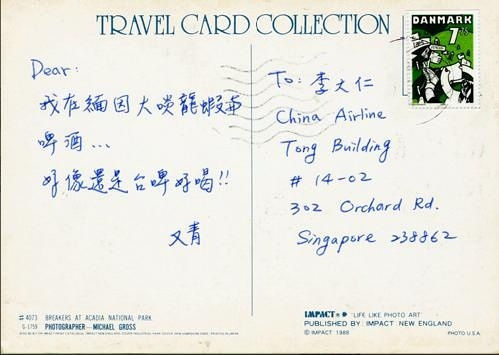 TRAVEL CARD COLLECTION
DANMARK
Dear:
我在緬因大啖龍蝦
啤酒...
好像還是台啤好喝!!
又青
To: 李大仁
China Airline
Tong Building
# 14-02
302 Orchard Rd.
Singapore 238862
# 4073 BREAKERS AT ACADIA NATIONAL PARK
G-1759 PHOTOGRAPHER — MICHAEL GROSS
IMPACT® "LIFE LIKE PHOTO ART"
PUBLISHED BY: IMPACT NEW ENGLAND
© IMPACT 1988
PHOTO U.S.A.